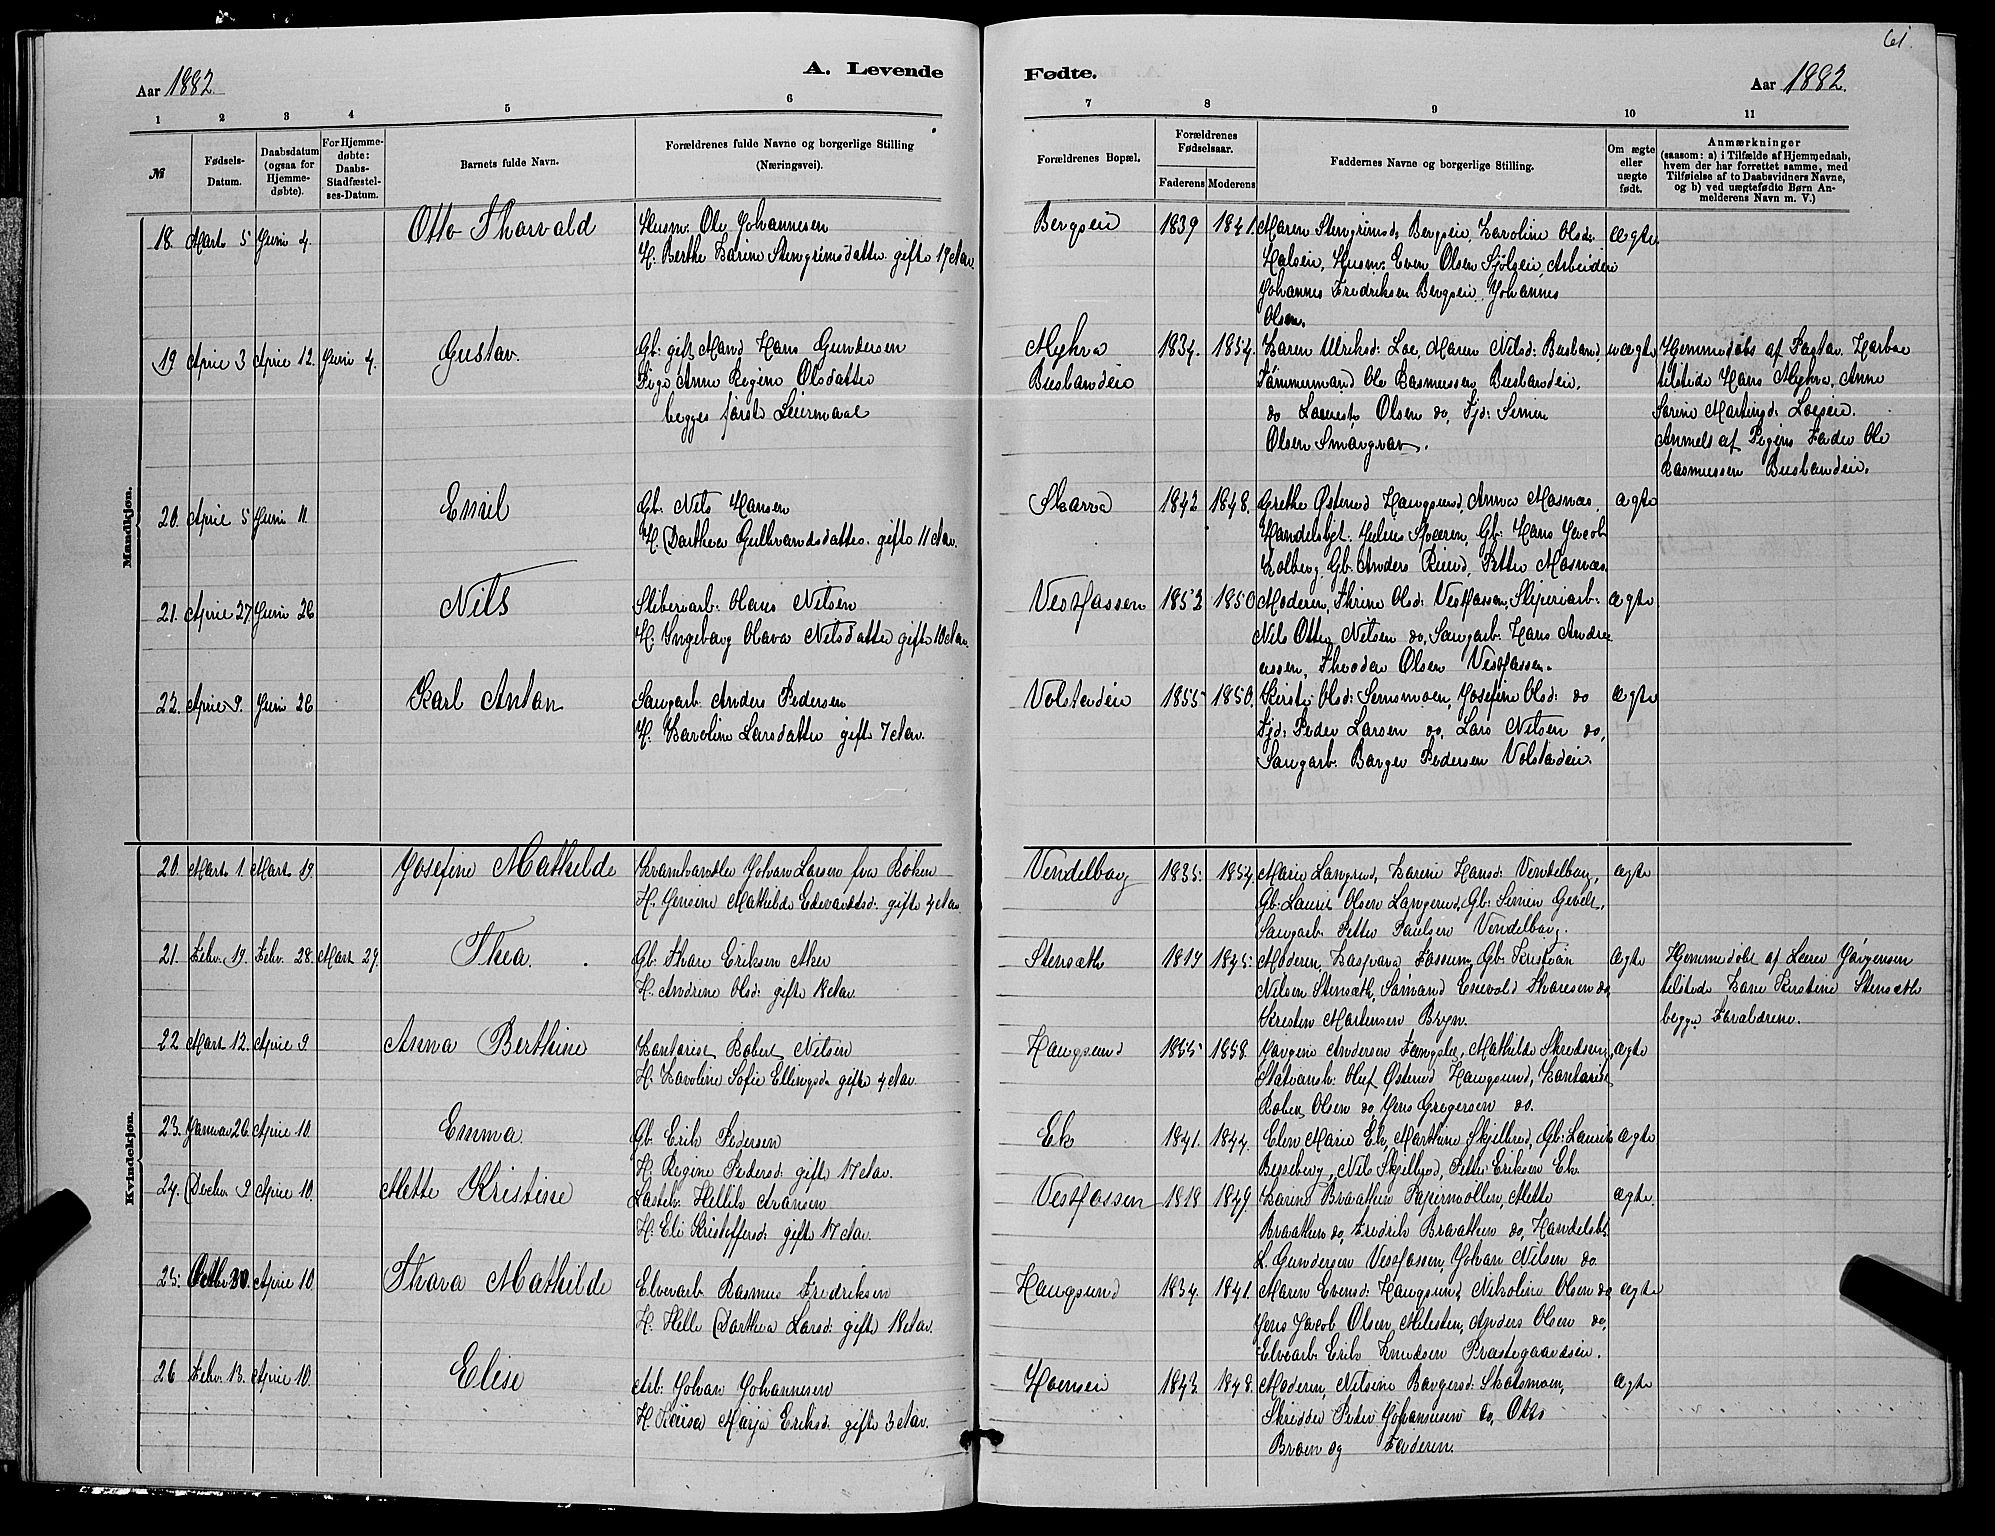 61.
Aar 1882.
A. Levende
Fødte.
Aar 1882.
1 2 3 4 5 6 7 8 9 10 11
№
Fødsels-
Datum.
Daabsdatum
(ogsaa for
Hjemme-
døbte).
For Hjemme-
døbte:
Daabs-
Stadfæstel-
ses-Datum.
Barnets fulde Navn.
Forældrenes fulde Navne og borgerlige Stilling
(Næringsvei).
Forældrenes Bopæl.
Forældrenes
Fødselsaar.
Faderens Moderens
Faddernes Navne og borgerlige Stilling.
Om ægte
eller
uægte
født.
Anmærkninger
(saasom: a) i Tilfælde af Hjemmedaab,
hvem der har forrettet samme, med
Tilføielse af to Daabsvidners Navne,
og b) ved uægtefødte Børn An-
melderens Navn m. V.)
Mandkjøn.
18. Marts 5 Juni 4. Otto Thorvald Husm. Ole Johannesen Bergseie 1839 1841. Maren Stengrimsd. Bergseie, Karoline Olsd. ægte
H. Berthe Karine Stengrimsdatter gifte 19 Aar.
Husm. Even Olsen Sjølseie, Arbeider
Johannes Fredriksen Bergseie, Johannes
Olsen.
19 April 3 April 12. Juni 4. Gustav. Gb: gift Mand Hans Gundersen Myhra 1834. 1854. Karen Ulriksd: Loe, Maren Nilsd: uægte Hjemmedøbt af
Pige Anne Regine Olsdatter Tømmermand Ole Rasmussen tilstede Hans Myhra, Anne
begges første Leiermaal do Olsen do, Simen Martinsd:
Olsen Anmeldt af Pigens Fader Ole
Rasmussen
20. April 5 Juni 11. Emil Gb. Nils Hansen Skarra 1842 1848. Grethe Østerud Haugsund, Anna Masnæs, ægte
H. Dorthea Gulbrandsdatter gifte 11 Aar. Julius Gb. Hans Jacob
Kolberg, Gb. Anders Petter Masnæs
21. April 27. Juni 26 Nils Hans Nilsen Vestfossen 1852 1850 Moderen, Thrine Olsd: Vestfossen, Sliperiarb: ægte
H. Ingeborg Olava Nilsdatter gifte 10 Aar. Nils Otto Nilsen do, Saugarb: Hans Andre-
assen, Theodor Olsen Vestfossen.
22. April 9. Juni 26 Karl Anton Saugarb. Anders Pedersen Volstadeie 1855 1850. Kirsti Olsd: Semsmoen, Josefine Olsd: do ægte
H. Karoline Larsdatter gifte 7 Aar. Peder Larsen do, Lars Nilsen do,
Saugarb. Borger Pedersen Volstadeie.
Kvindekjøn.
20. Mart 1. Mart 19. Josefine Mathilde Kramhandler Johan Larsen fra Røken Vendelborg 1835. 1854. Marie Langerud, Karine Hansd: Vendelborg, ægte
H. Jensine Mathilde Edevardsd: gifte 4 Aar. Gb: Laurits Olsen Langerud, Gb: Simen
Saugarb. Petter Paulsen Vendelborg.
21. Febr. 19. Febr. 28. Mart 29. Thea. Gb. Thore Eriksen Aker Stensæth 1819 1845. Moderen, Kaspara Fossum, Gb: Kristian ægte Hjemmedøbt af Jørgensen
H. Andrine Olsd: gifte 18 Aar. Nilsen Stensæth, Sømand Enevold Thoresen do, tilstede Kirstine Stensæth
Kristen Martensen Bryn. begge Forældrene.
22 Mart 12. April 9 Anna Berthine Kontorist Robert Nilsen Haugsund 1855 1858. Andersen Mathilde ægte
H. Karoline Sofie Ellingsd. gifte 4 Aar. Oluf Østerud Haugsund, Kontorist
Robert Olsen do, Jens Gregersen do.
23. Januar 26. April 10. Emma. Gb. Erik Pedersen Ek 1841. 1844. Elen Marie Ek, Marthine Skjelbred, Gb: Laurits ægte
H. Regine Pedersd: gifte 17 Aar. Nils Skjelbred, Petter Eriksen Ek
24. Decbr. 9 April 10. Mette Kristine Hellik Aronsen Vestfossen 1818 1849. Karine Braathen Papirmøllen, Mette ægte.
H. Eli Kristoffersd: gifte 17 Aar. Braathen do, Fredrik Braathen do, Handelsb.
L. Gundersen Vestfossen, Johan Nilsen do
25: Octbr 30. April 10 Thora Mathilde Elvearb. Rasmus Fredriksen Haugsund 1834. 1841. Maren Evensd: Haugsund, Nikoline Olsen do ægte
H. Helle Dorthea Larsd: gifte 18 Aar. Jens Jacob Olsen, Milesten, Anders Olsen do,
Elvearb. Erik Knudsen Præstegaardseie.
26 Febr. 13. April 10. Elise Arb: Johan Johannesen Hoenseie 1843. 1848. Moderen, Nilsine Borgersd: Skotsmoen, ægte
H. Kaisa Maija Eriksd: gifte 3 Aar. Skrædder Peder Johannesen do, Otto
Braen og Faderen.